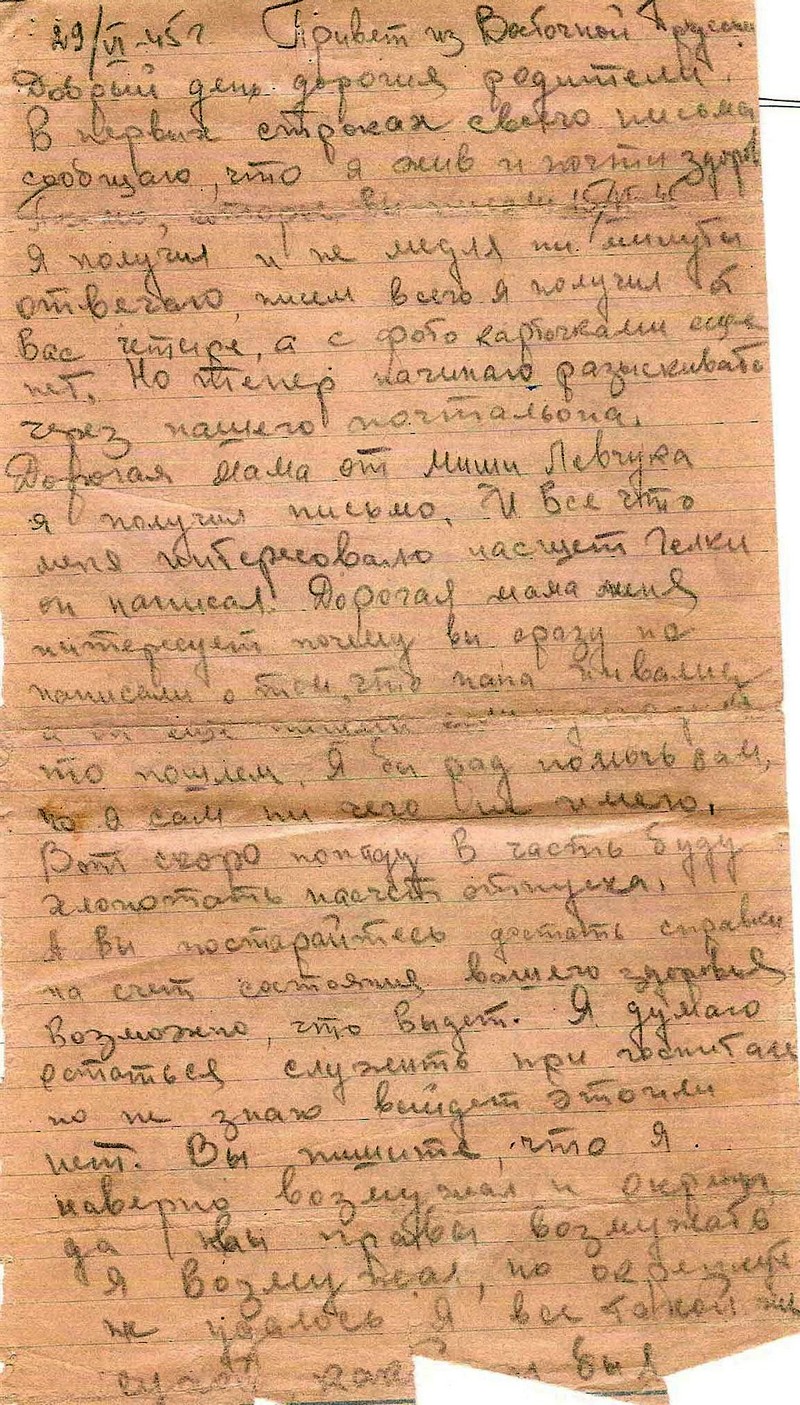 29/VI-45г Привет из Восточной Пруссии
Добрый день дорогия родители.
В первых строках своего письма
сообщаю, что я жив и почти здоров
которое вы писали
Я получил и не медля ни минуты
отвечаю, писем всего я получил от
Вас четыре, а с фото карточками еще
нет. Но тепер начинаю разыскивать
через нашего почтальона.
Дорогая Мама от Миши Левчука
я получил письмо. И все что
меня интересовало насщет Гелки
он написал. Дорогая мама меня
интересует почему вы сразу не
написали о том, что папа инвалид
а
то пошлем. Я бы рад помочь вам,
но я сам ни чего не имею.
Вот скоро попаду в часть буду
хлопотать насчет отпуска.
А Вы постарайтесь достать справки
на счет состояния вашего здоровья
возможно, что выдет. Я думаю
остаться служить при госпитале
но не знаю выйдет это или
нет. Вы пишите, что я
наверно возмужал и окреп
да вы правы возмужать
я возмужал, но окрепнуть
не удалось Я все такой же
как и был